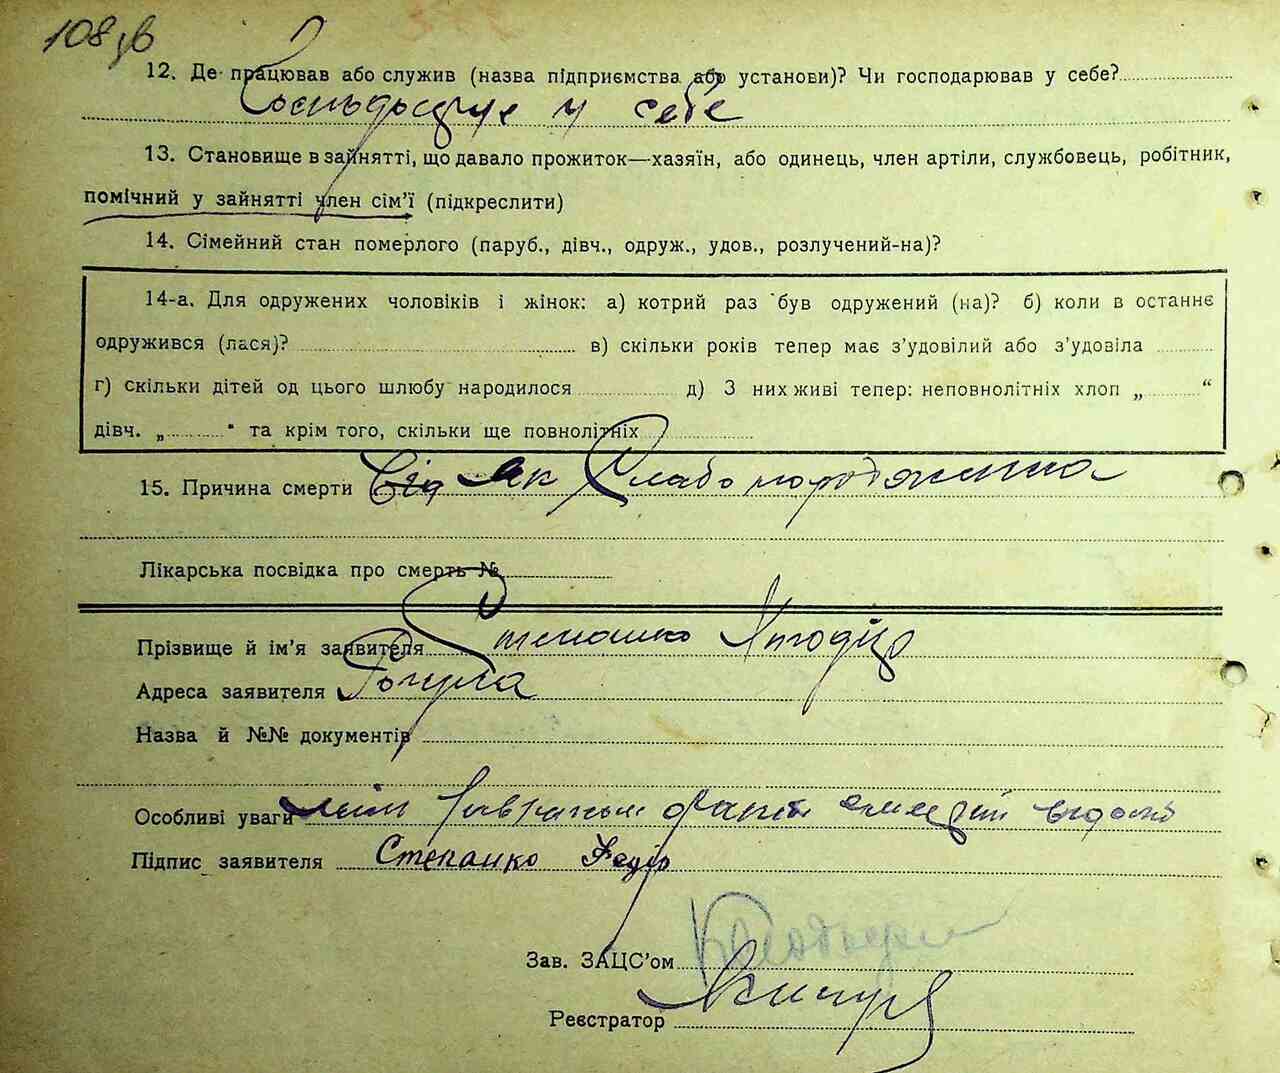 108 зв
12. Де працював або служив (назва підприємства або установи)? Чи господарював у себе?
Господарює у себе
13. Становище в зайнятті, що давало прожиток—хазяїн, або одинець, член артіли, службовець, робітник,
помічний у зайнятті член сім’ї (підкреслити)
14. Сімейний стан померлого (паруб., дівч., одруж., удов., розлучений-на)?
14-а. Для одружених чоловіків і жінок: а) котрий раз був одружений (на)? б) коли в останнє
одружився (лася)? в) скільки років тепер має з’удовілий або з’удовіла
г) скільки дітей од цього шлюбу народилося д) З них живі тепер: неповнолітніх хлоп „ “
дівч. „ “ та крім того, скільки ще повнолітніх
15. Причина смерти Від як Слабонароджена
Лікарська посвідка про смерть №
Прізвище й ім’я заявителя Степанко
Адреса заявителя
Назва й №№ документів
Особливі уваги факт смерти
Підпис заявителя Степанко Федір
Зав. ЗАЦС’ом
Реєстратор